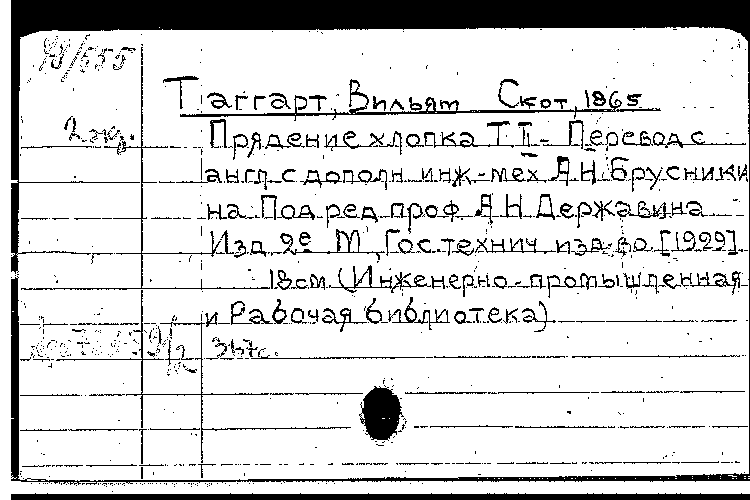 Таггарт, Вильям Скот, 1865
2 экз.
Прядение хлопка Т. II - Перевод с
англ. с дополн. инж-мех А.Н. Брусники
на Под ред проф А Н Державина
Изд 2е М, Гос. технич. изд-во [1929].
18см (Инженерно-промышленная
и Рабочая библиотека).
367с.